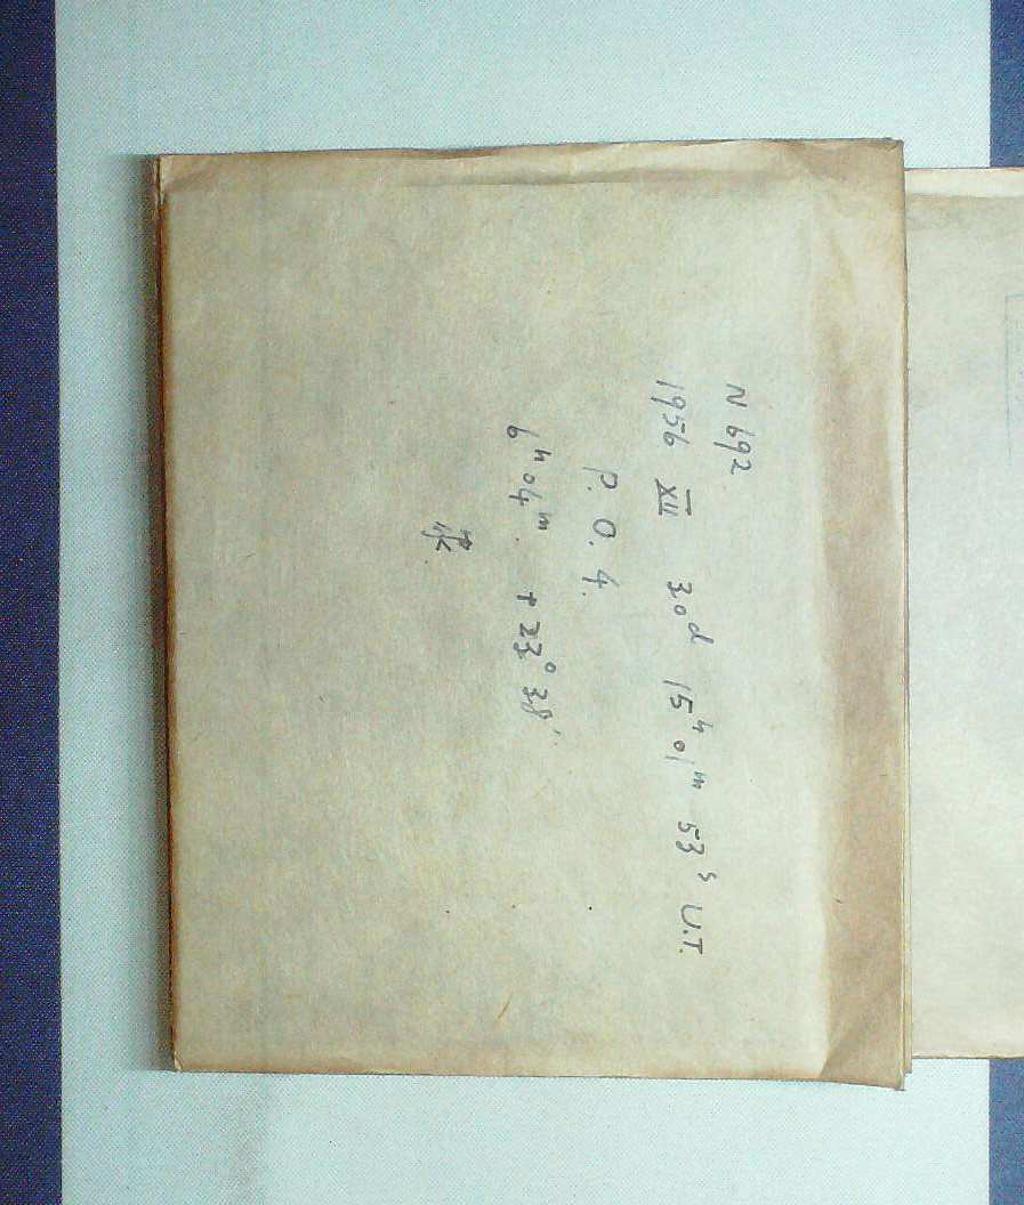 N 692
1956 XII 30d 15h 01m 53s U.T.
P. O. 4.
6h 04m. + 23° 38′